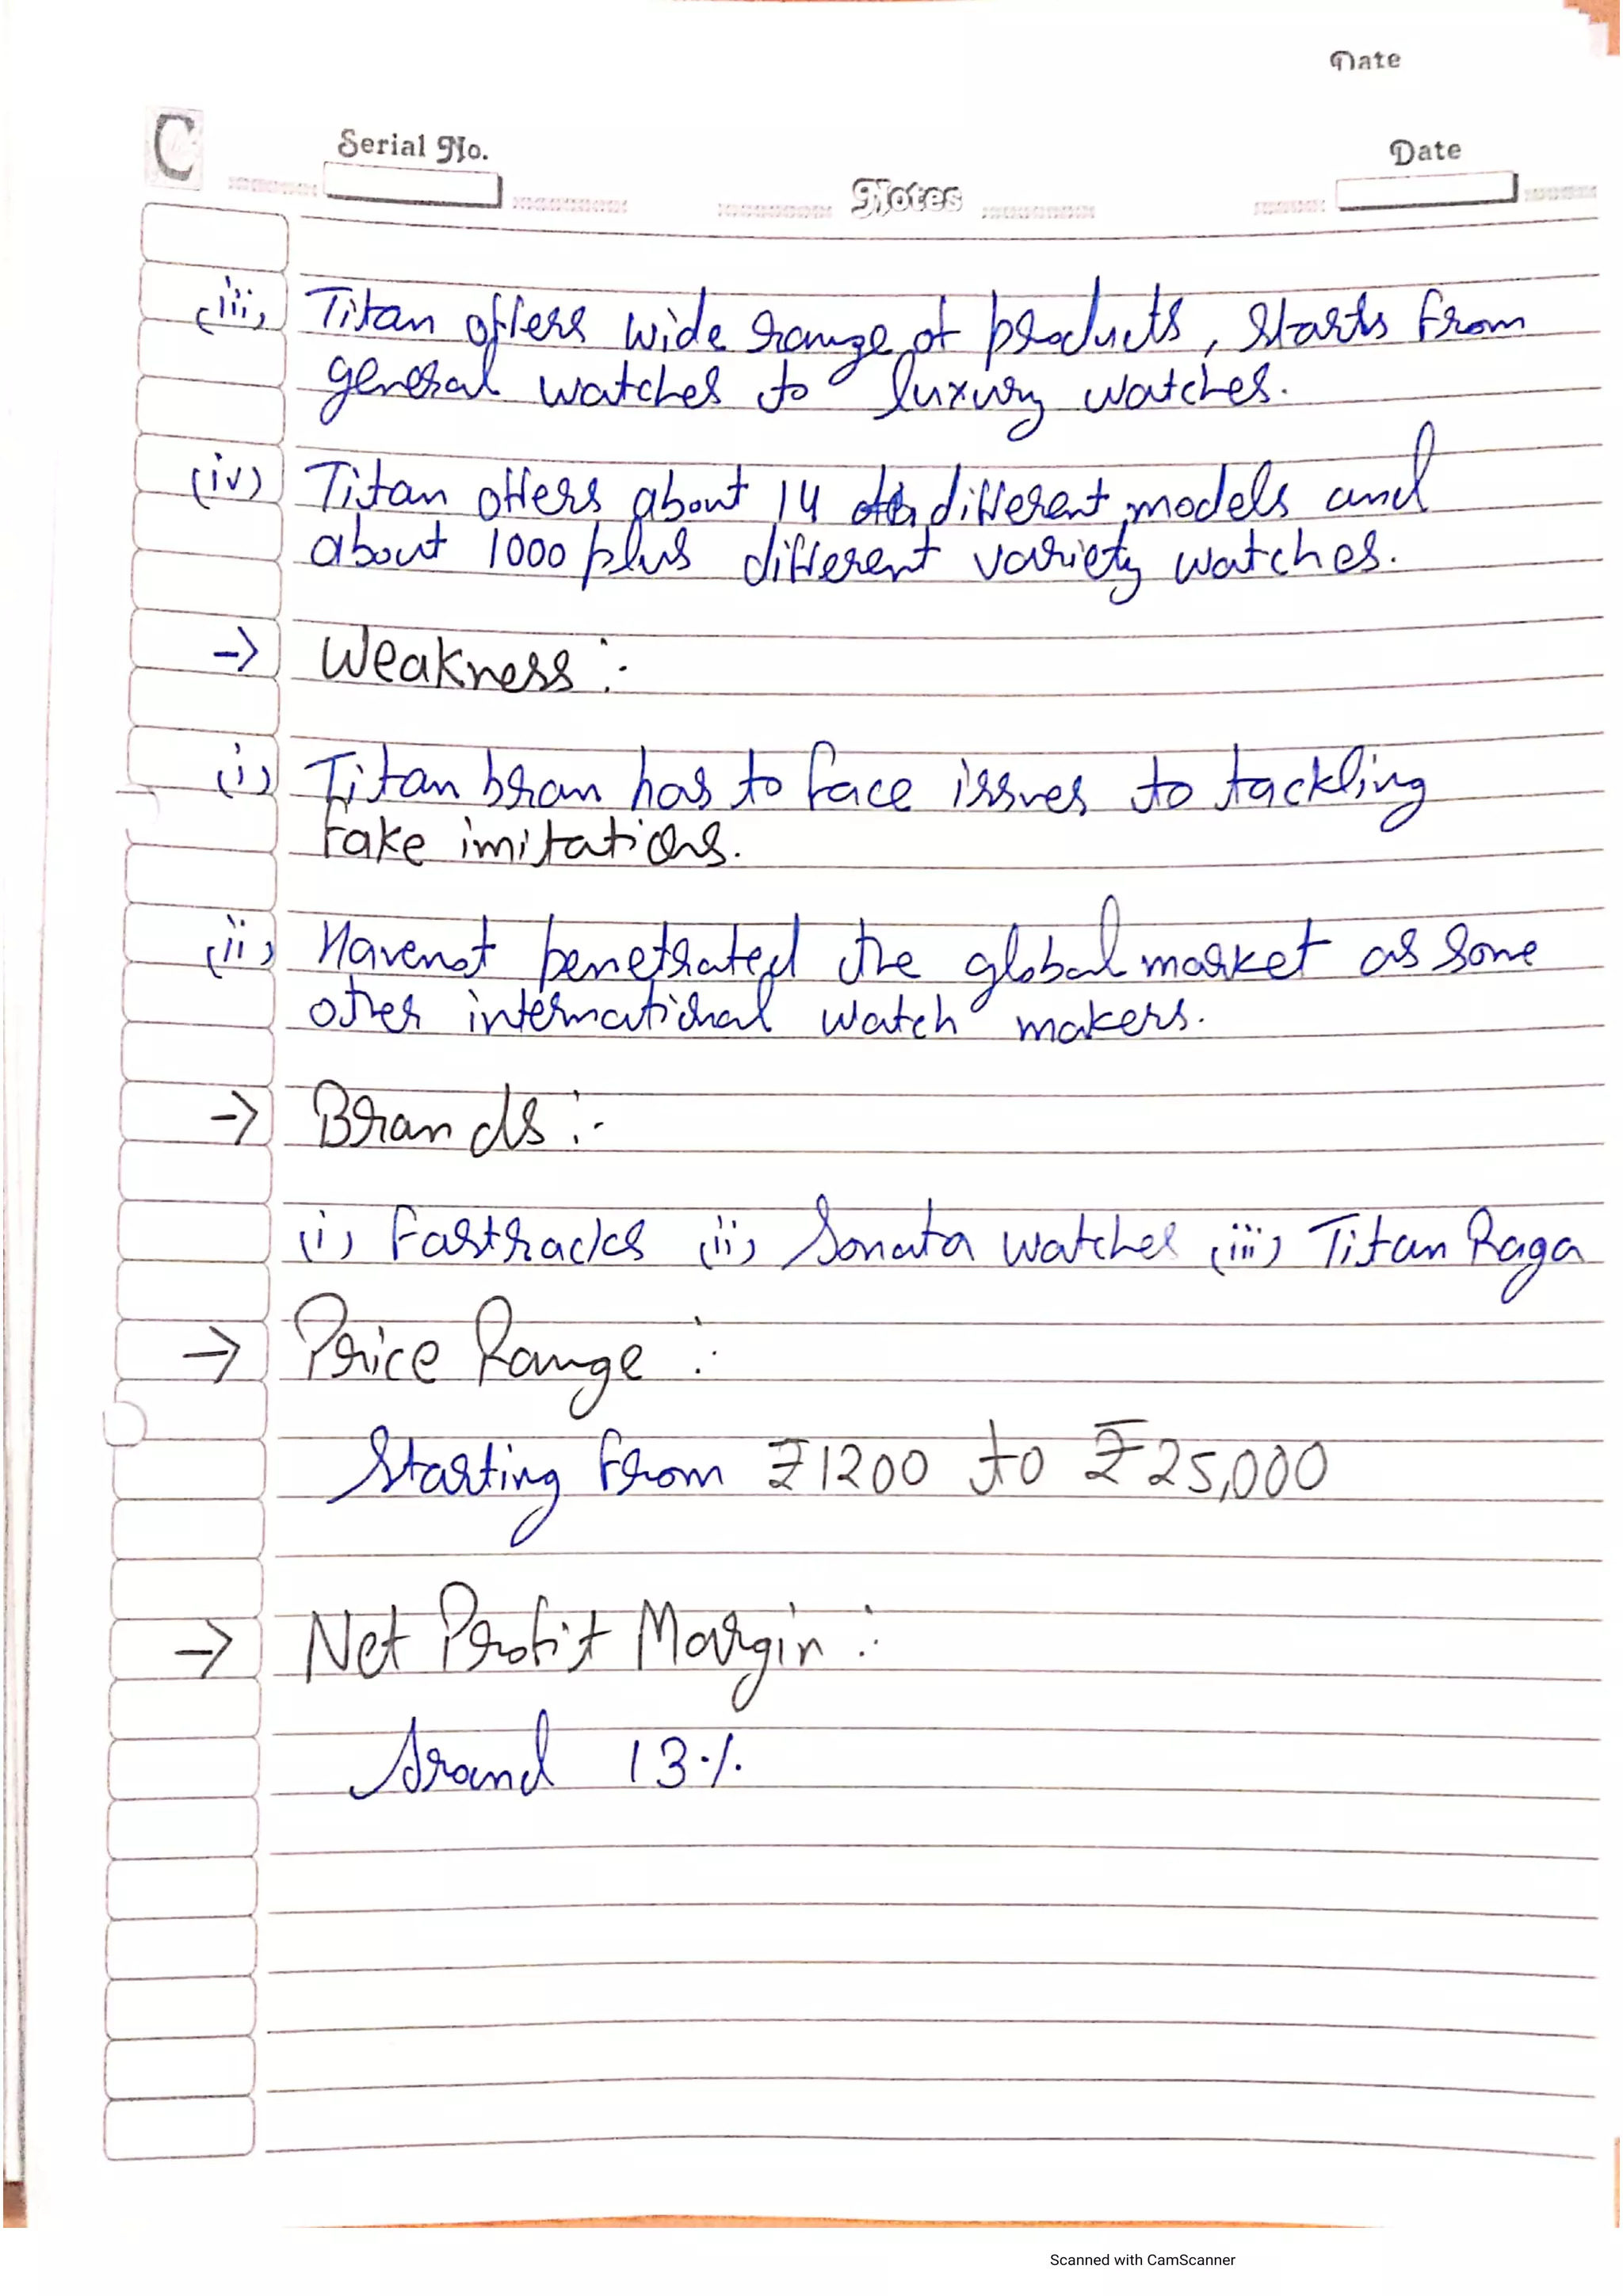 Date
C
Serial No.
Date
Notes
(iii) Titan offers wide range of products, Starts from
general watches to luxury watches.
(iv) Titan offers about 14 different models and
about 1000 plus different variety watches.
-> Weakness :-
(i) Titan bran has to face issues to tackling
fake imitations.
(ii) Havenot penetrated the global market as some
other international watch makers.
-> Brands :-
(i) Fastracks (ii) Sonata watches (iii) Titan Raga
-> Price Range :
Starting from ₹1200 to ₹25,000
-> Net Profit Margin :
Around 13%
Scanned with CamScanner